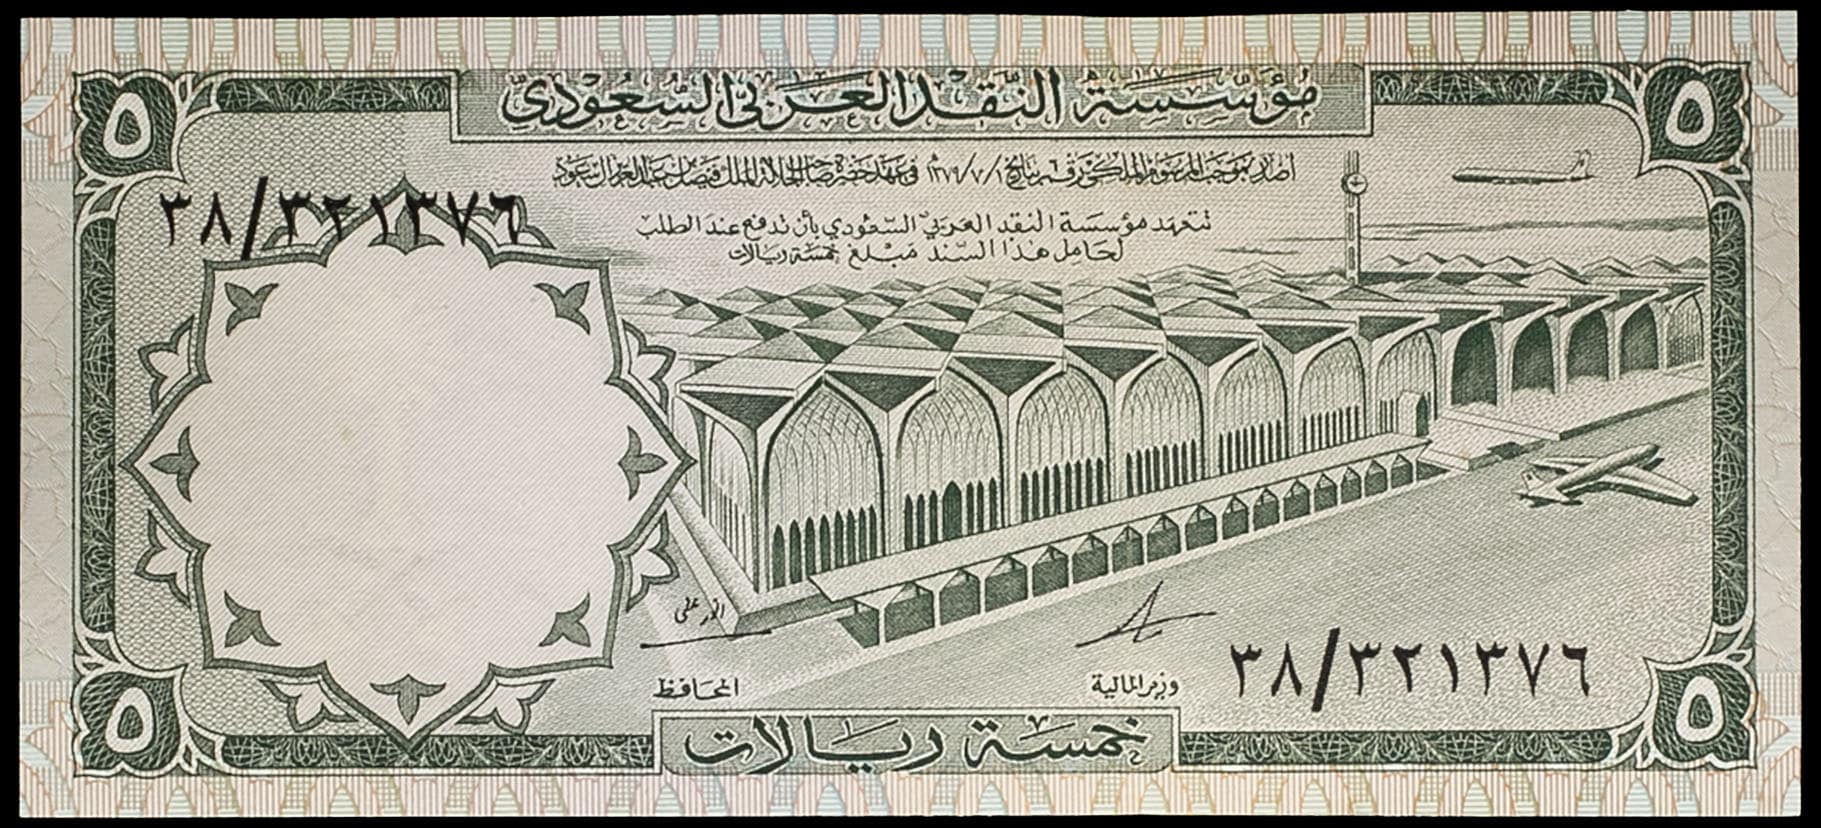 ٥
مؤسسة النقد العربي السعودي
٥
أصدر بموجب المرسوم الملكي رقم ٦ بتاريخ ١٣٧٩/٧/١ في عهد حضرة صاحب الجلالة الملك فيصل بن عبد العزيز آل سعود
٣٨/٣٢١٣٧٦
تتعهد مؤسسة النقد العربي السعودي بأن تدفع عند الطلب
لحامل هذا السند مبلغ خمسة ريالات
وزير المالية
المحافظ
٣٨/٣٢١٣٧٦
٥
خمسة ريالات
٥